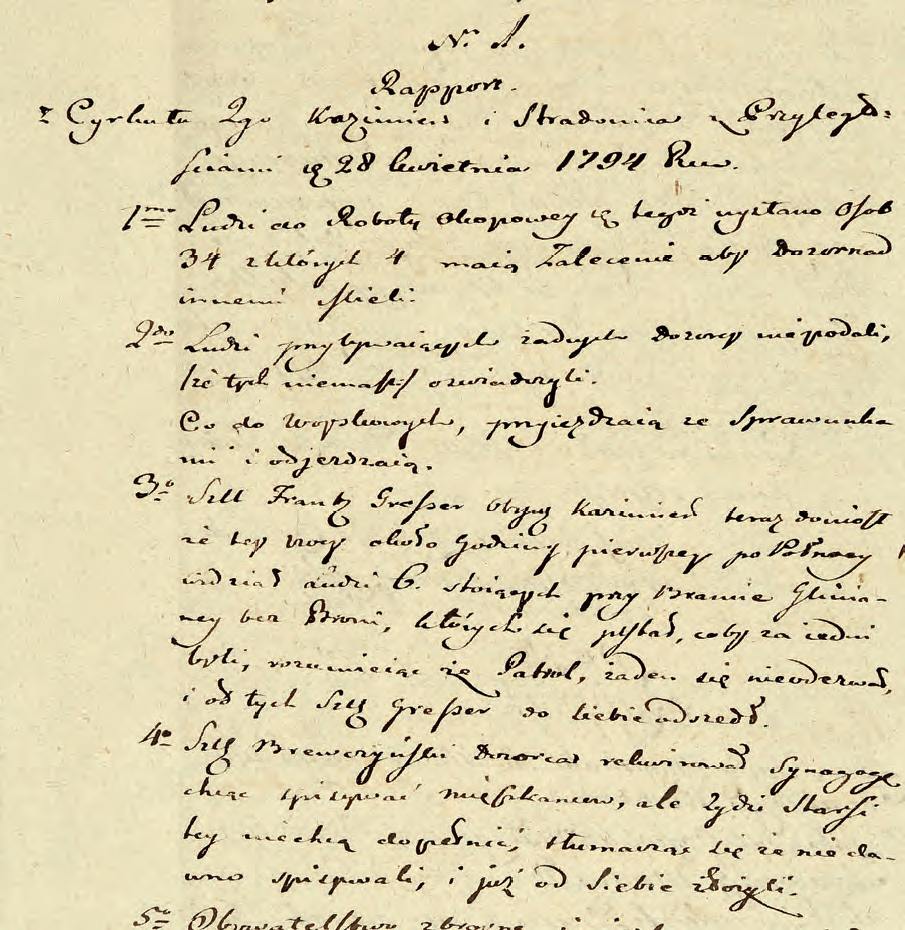 No 1.
Rapport.
z Cyrkułu 2go Kazimierz i Stradomia z Przyległo=
ściami die 28 kwietnia 1794 Rku.
1mo Ludzi do Roboty Okopowey die tegoż wysłano Osob
34 z których 4 maią Zalecenie aby Dozor nad
innemi Mieli.
2do Ludzi przybywaiących żadnych dozorcy nie podali,
/że tych niemasz/ oświadczyli.
Co do Woyskowych, przyjeżdzaią ze Sprawunka
mi i odjeżdzaią.
3o Szll Frantz Greszer Obyw Kazimierz teraz doniosł
że tey nocy około Godziny pierwszey po Połnocy
widział Ludzi 6. stoiących przy Bramie Glinia-
ney bez Broni, których się pytał, coby za iedni
byli, rozumieiąc że Patrol, żaden się nieodezwał,
i od tych Szll Greszer do siebie odszedł.
4o Szll Brewczyński Dozorca rekwirował Synagogę
chcąc spisywać mieszkancow, ale Żydzi Starsi
tey niechcą dopełnić, tłumacząc się że nie da-
wno spisywali, i już od Siebie złożyli.
5o Obywatelstwo zbroyne i